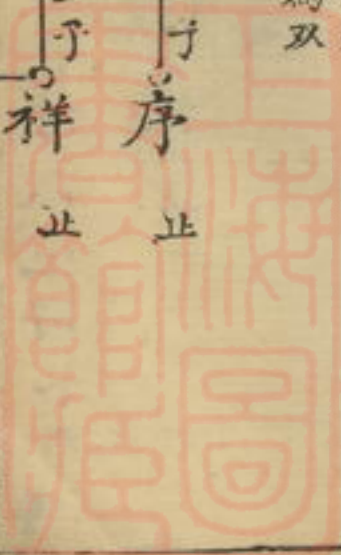 双
子 序 止
子 祥 止
上海圖
書館藏